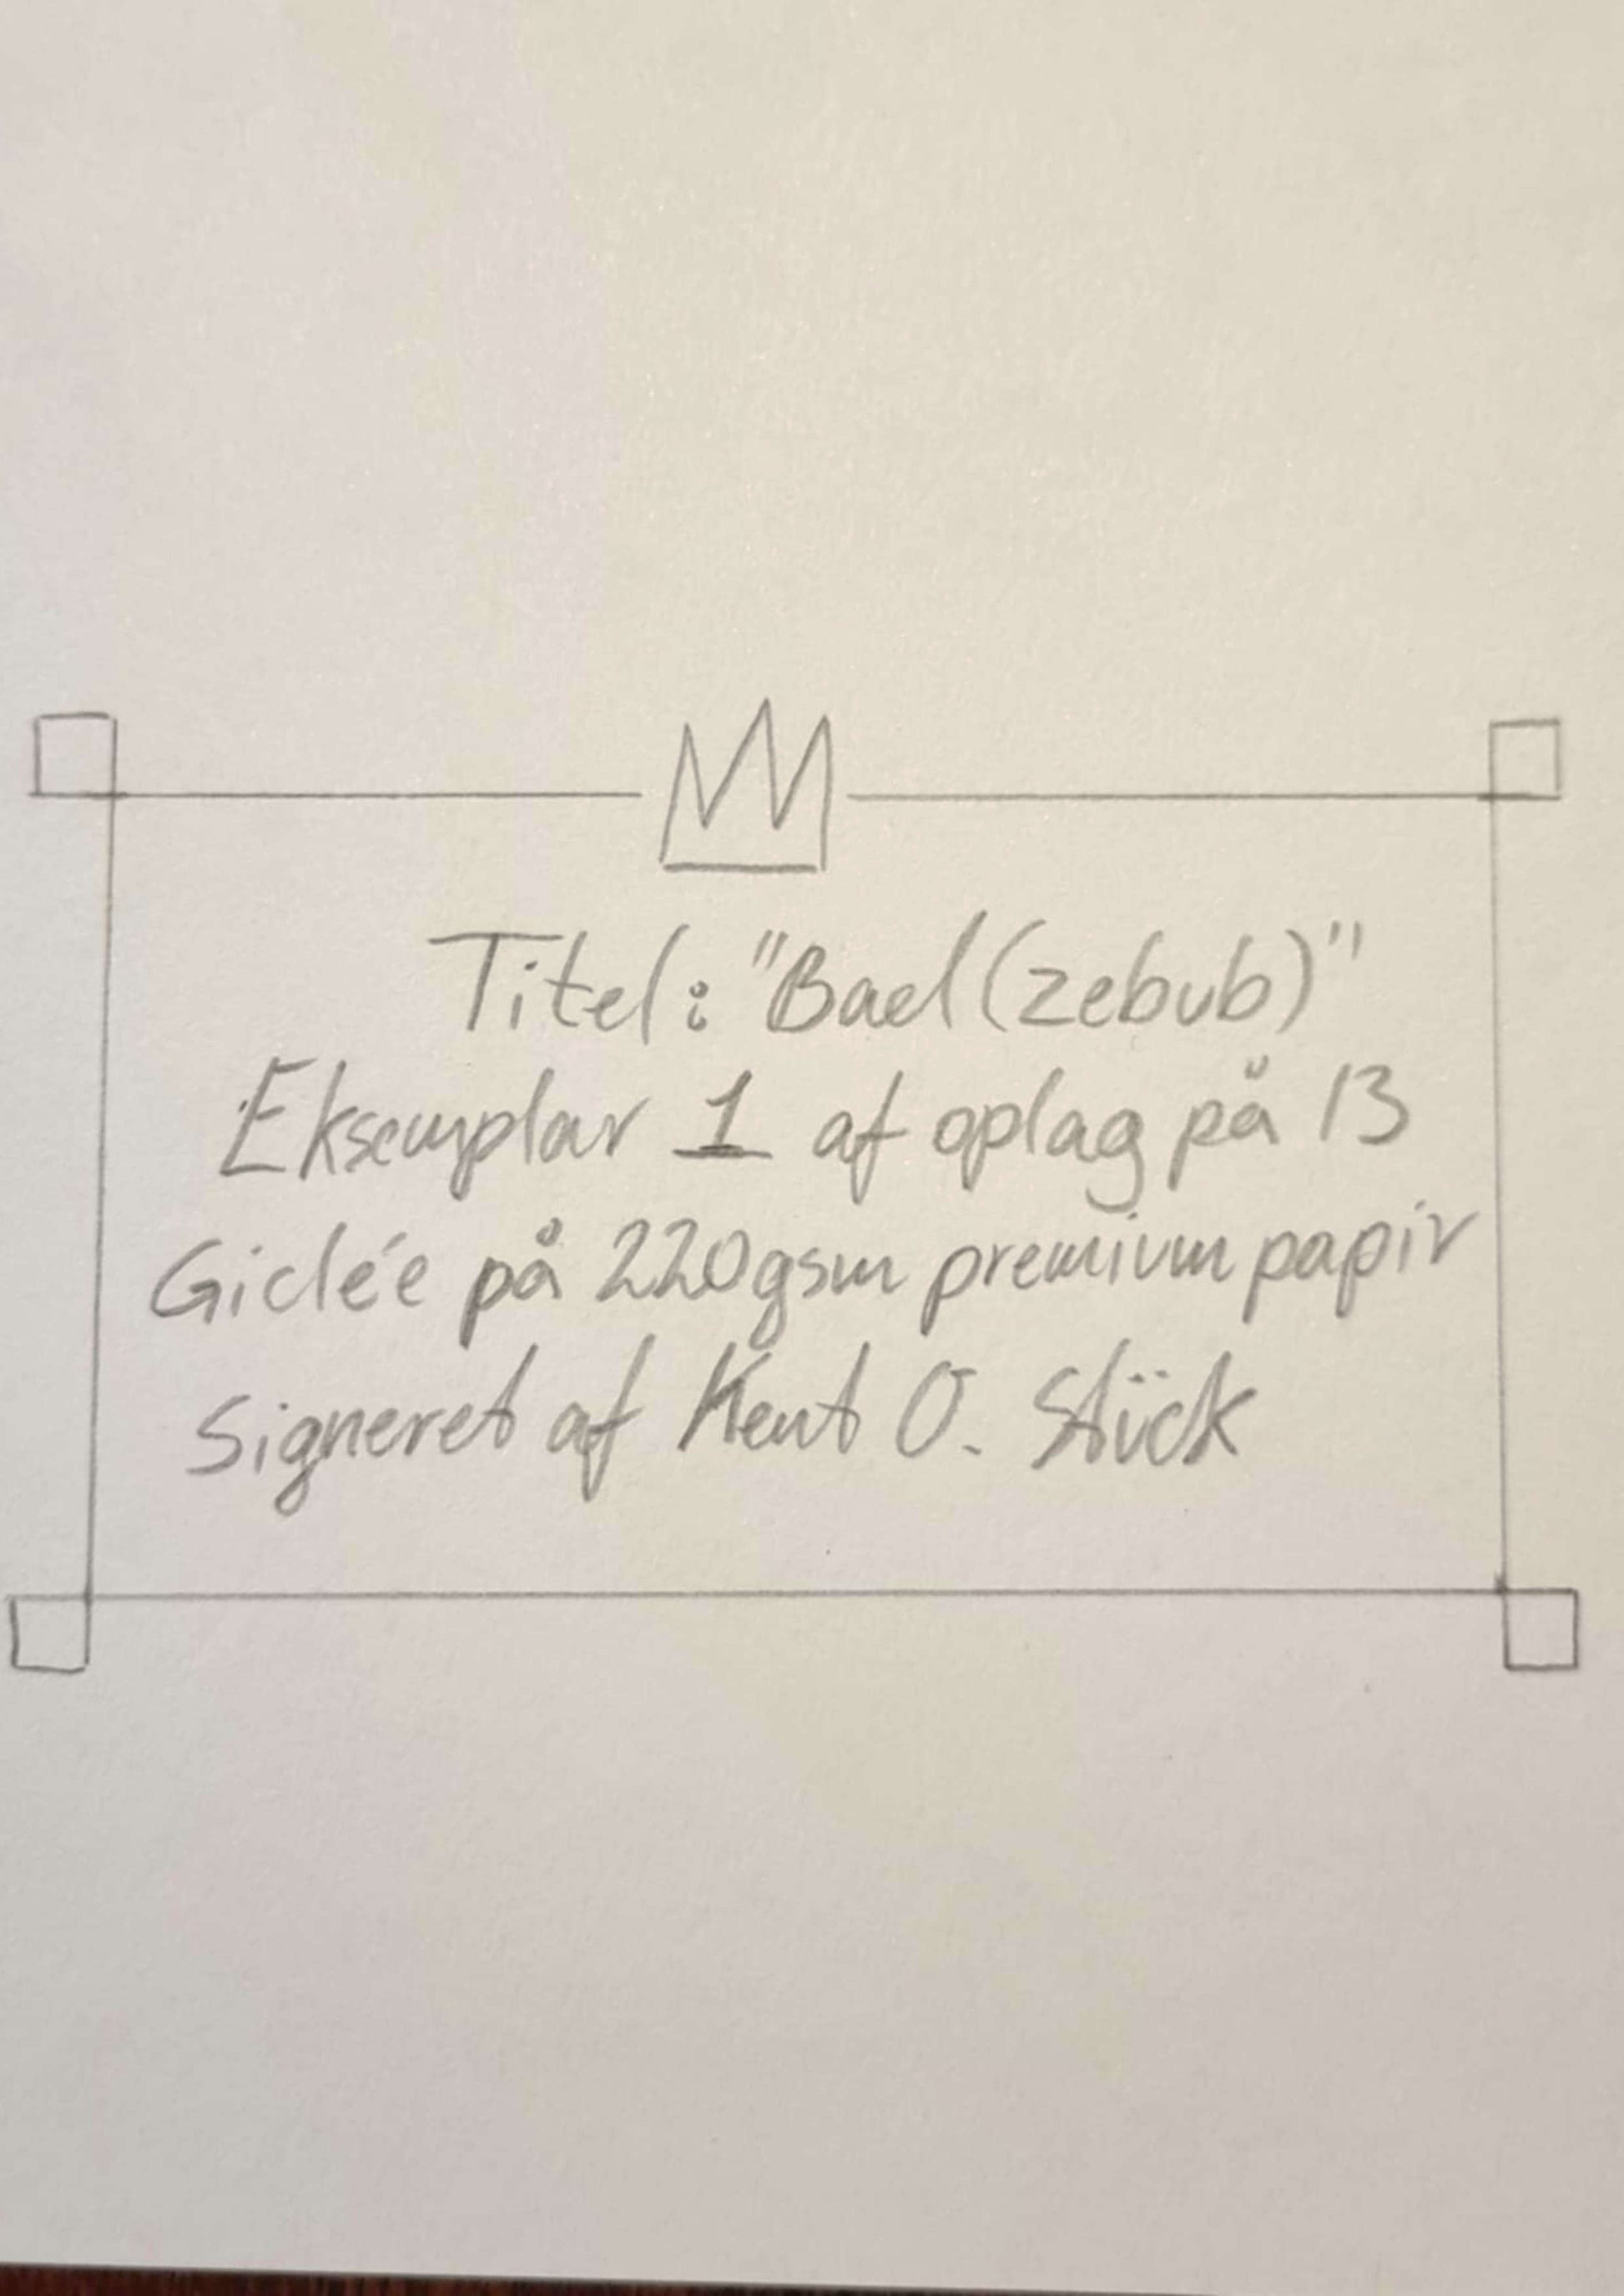 Titel: "Bael(zebub)"
Eksemplar 1 af oplag på 13
Giclée på 220gsm premium papir
Signeret af Kent O. Stück